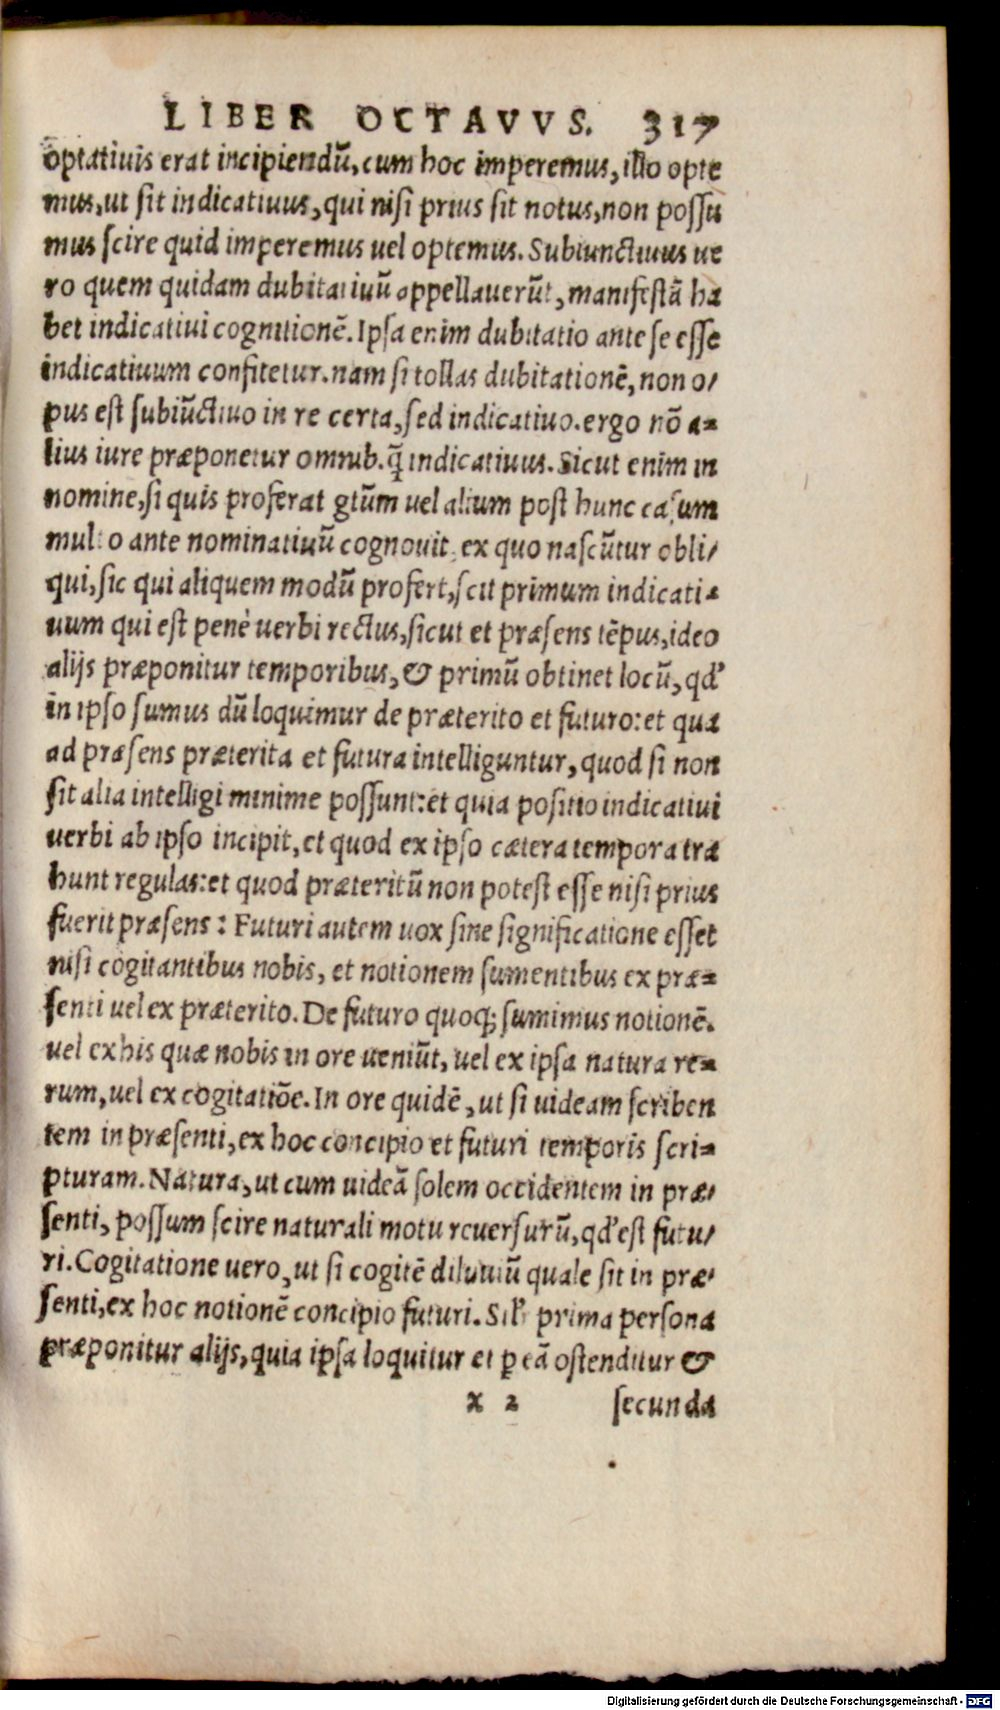 LIBER OCTAVVS. 317
optatiuis erat incipiendū, cum hoc imperemus, illo opte
mus, ut sit indicatiuus, qui nisi prius sit notus, non possu
mus scire quid imperemus uel optemus. Subiunctiuus ue
ro quem quidam dubitatiuū appellauerūt, manifestā ha
bet indicatiui cognitionē. Ipsa enim dubitatio ante se esse
indicatiuum confitetur. nam si tollas dubitationē, non o/
pus est subiūctiuo in re certa, sed indicatiuo. ergo nō a-
lius iure præponetur omnib. q̄ indicatiuus. Sicut enim in
nomine, si quis proferat gtūm uel alium post hunc casum
multo ante nominatiuū cognouit, ex quo nascūtur obli/
qui, sic qui aliquem modū profert, scit primum indicati-
uum qui est penè uerbi rectus, sicut et præsens tēpus, ideo
alijs præponitur temporibus, & primū obtinet locū, qd'
in ipso sumus dū loquimur de præterito et futuro: et quæ
ad præsens præterita et futura intelliguntur, quod si non
sit alia intelligi minime possunt: et quia positio indicatiui
uerbi ab ipso incipit, et quod ex ipso cætera tempora tra
hunt regulas: et quod præteritū non potest esse nisi prius
fuerit præsens: Futuri autem uox sine significatione esset
nisi cogitantibus nobis, et notionem sumentibus ex præ-
senti uel ex præterito. De futuro quoq; sumimus notionē.
uel ex his quæ nobis in ore ueniūt, uel ex ipsa natura re-
rum, uel ex cogitatiōe. In ore quidē, ut si uideam scriben
tem in præsenti, ex hoc concipio et futuri temporis scri-
pturam. Natura, ut cum uideā solem occidentem in præ/
senti, possum scire naturali motu reuersurū, qd' est futu/
ri. Cogitatione uero, ut si cogitē diluuiū quale sit in præ/
senti, ex hoc notionē concipio futuri. Sil'r prima persona
præponitur alijs, quia ipsa loquitur et p eā ostenditur &
x 2 secunda
Digitalisierung gefördert durch die Deutsche Forschungsgemeinschaft - DFG